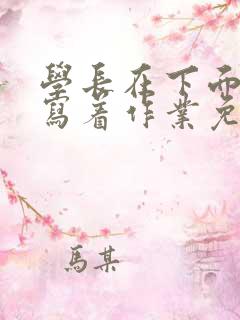 學長在下面
寫着作業免
馬某